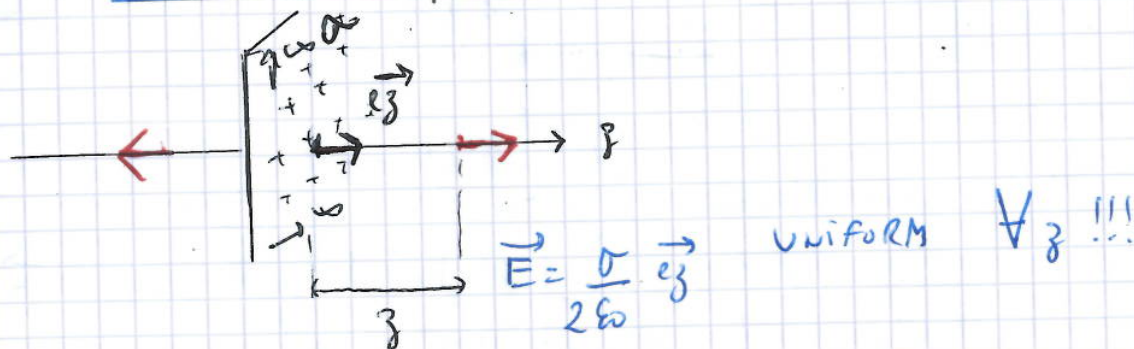 ∞ σ
→ez
z
∞
→E = σ/2ε0 →ez UNIFORM ∀z !!!
z